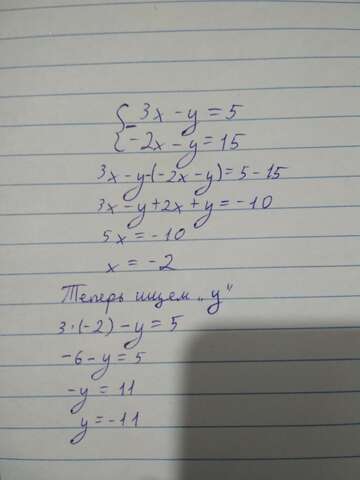 { 3x - y = 5
{ -2x - y = 15
3x - y - (-2x - y) = 5 - 15
3x - y + 2x + y = -10
5x = -10
x = -2
Теперь ищем „y"
3·(-2) - y = 5
-6 - y = 5
-y = 11
y = -11